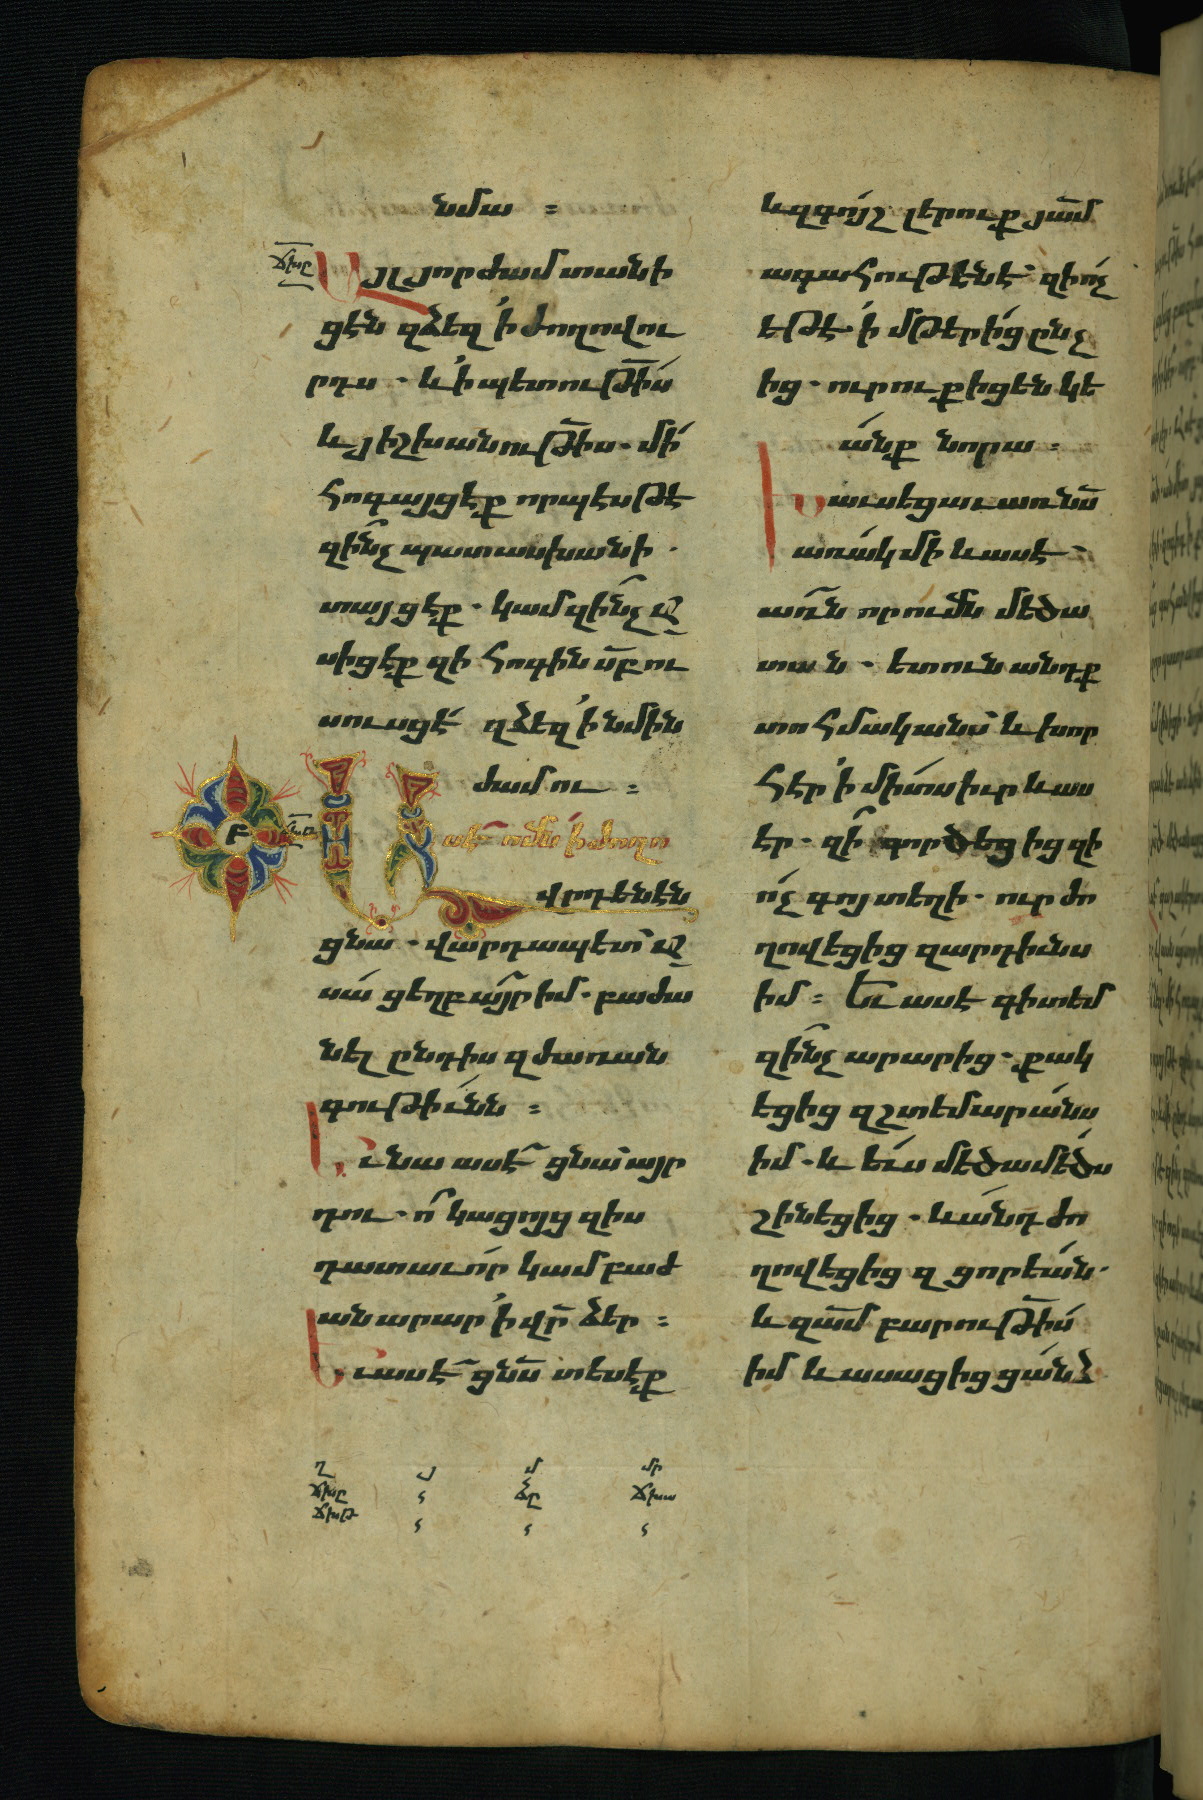 նմա ։
ճխը
Այլ յորժամ տանի
ցեն զձեզ ՛ի ժողովու
րդս . և ՛ի պետութի՛ս
և յիշխանութիս . մի՛
հոգայցեք որպէս թէ
զինչ պատասխանի .
տայցէք . կամ զինչ ա
սիցէք զի հոգին սբ ու
սուսցէ՛ զձեզ ՛ի նմին
ժամու ։
Բ
Ասէ ոմն ՛ի ժողո
վրդենէն
ցնա . վարդապետ ա
սա՛ ցեղբայր իմ . բաժա
նել ընդիս զժառան
գութի՛ւնն ։
Եւ նա ասէ ցնա այր
դու . ո՞ կացոյց զիս
դատաւո՛ր կամ բաժ
անարար ՛ի վր ձեր ։
Եւ ասէ ցնս տեսէք
և զգո՛յշ լերուք յամ
ագահութէնէ . զի ո՛չ
եթէ ՛ի մթերի՛ց ընչ
ից . ուրուք իցեն կե
ա՛նք նորա ։
Խաւսեցաւ առ նս
առա՛կ մի և ասէ .
առն որումն մեծա
տան . ետուն անդք
տոհմականս և խոր
հէր ՛ի մի՛տս իւր և աս
էր . զի՞ գործեցից զի
ո՛չ գոյ տեղի . ուր ժո
ղովեցից զարդիւնս
իմ ։ Եւ ասէ գիտեմ
զինչ արարից . քակ
եցից զշտեմարա՛նս
իմ . և ևս մեծամե՛ծս
շինեցից . և ա՛նդ ժո
ղովեցից զցորեա՛ն .
և զամ բարութի՛ս
իմ և ասացից ցա՛նձ
ղ յ մ մր
ճխը ճը ճխա
ճխթ